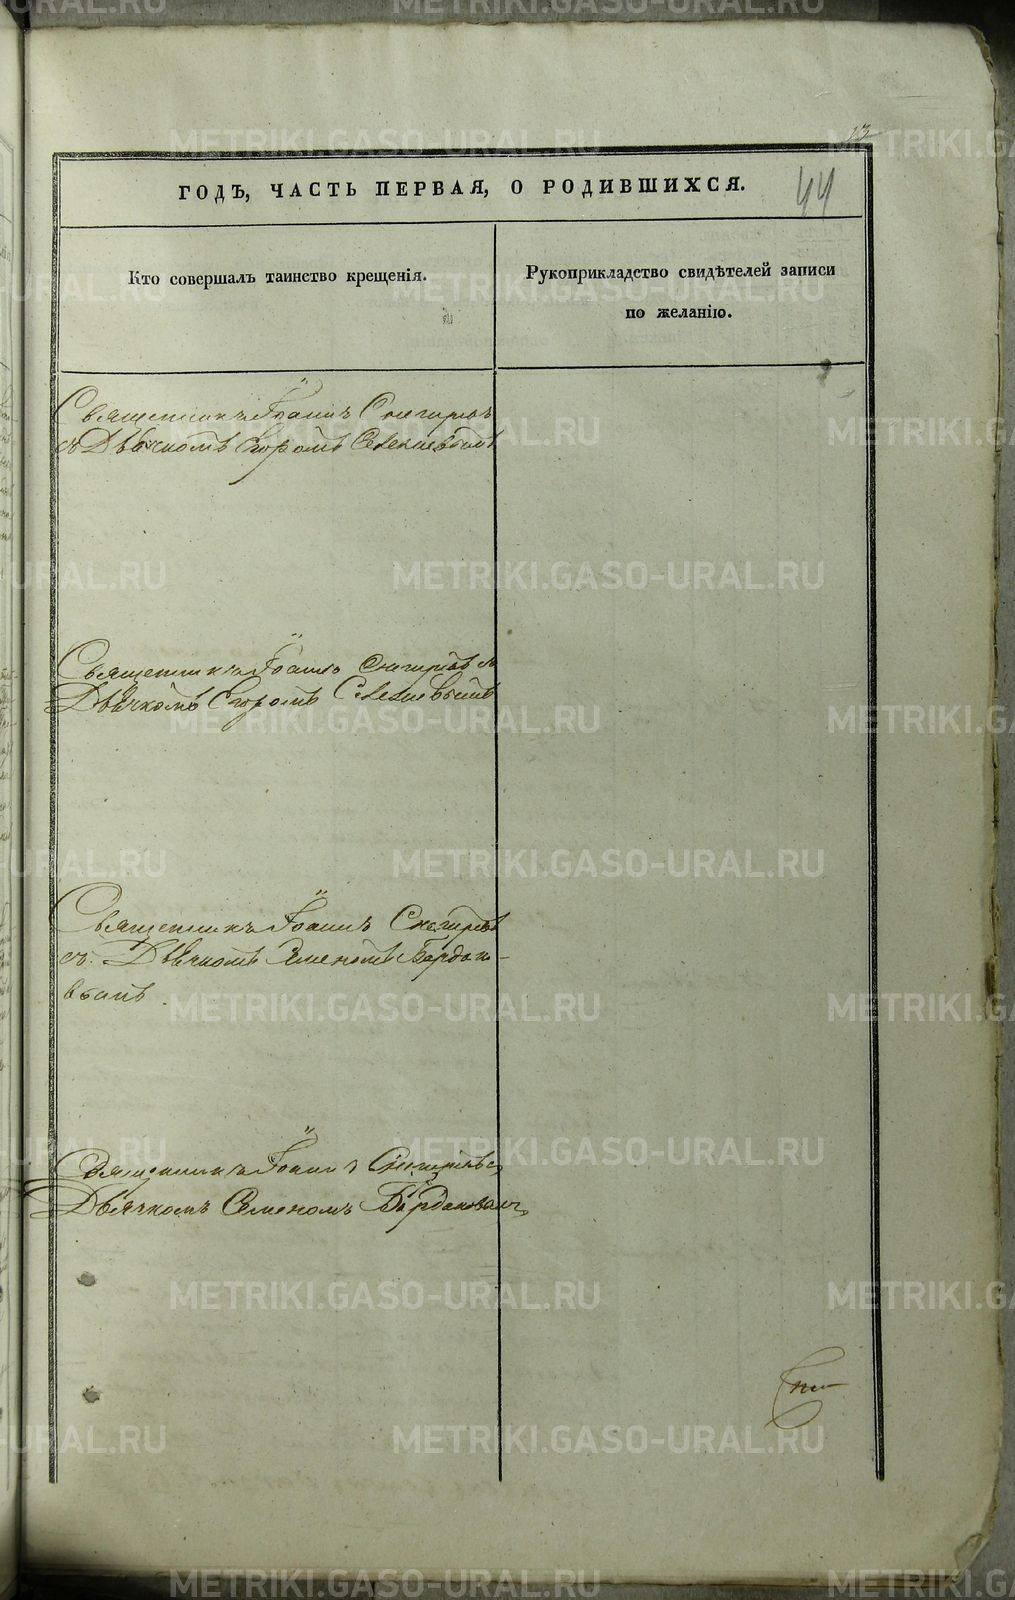 13
44
ГОДЪ, ЧАСТЬ ПЕРВАЯ, О РОДИВШИХСЯ.
Кто совершалъ таинство крещенія.
Рукоприкладство свидѣтелей записи
по желанію.
Священникъ Іоаннъ Снегиревъ
съ Дьячкомъ Егоромъ
Священникъ Іоаннъ Снегиревъ съ
Дьячкомъ Егоромъ
Священникъ Іоаннъ Снегиревъ
съ Дьячкомъ Семеномъ Бардако-
вымъ
Священникъ Іоаннъ Снегиревъ съ
Дьячкомъ Семеномъ Бардаковымъ
METRIKI.GASO-URAL.RU